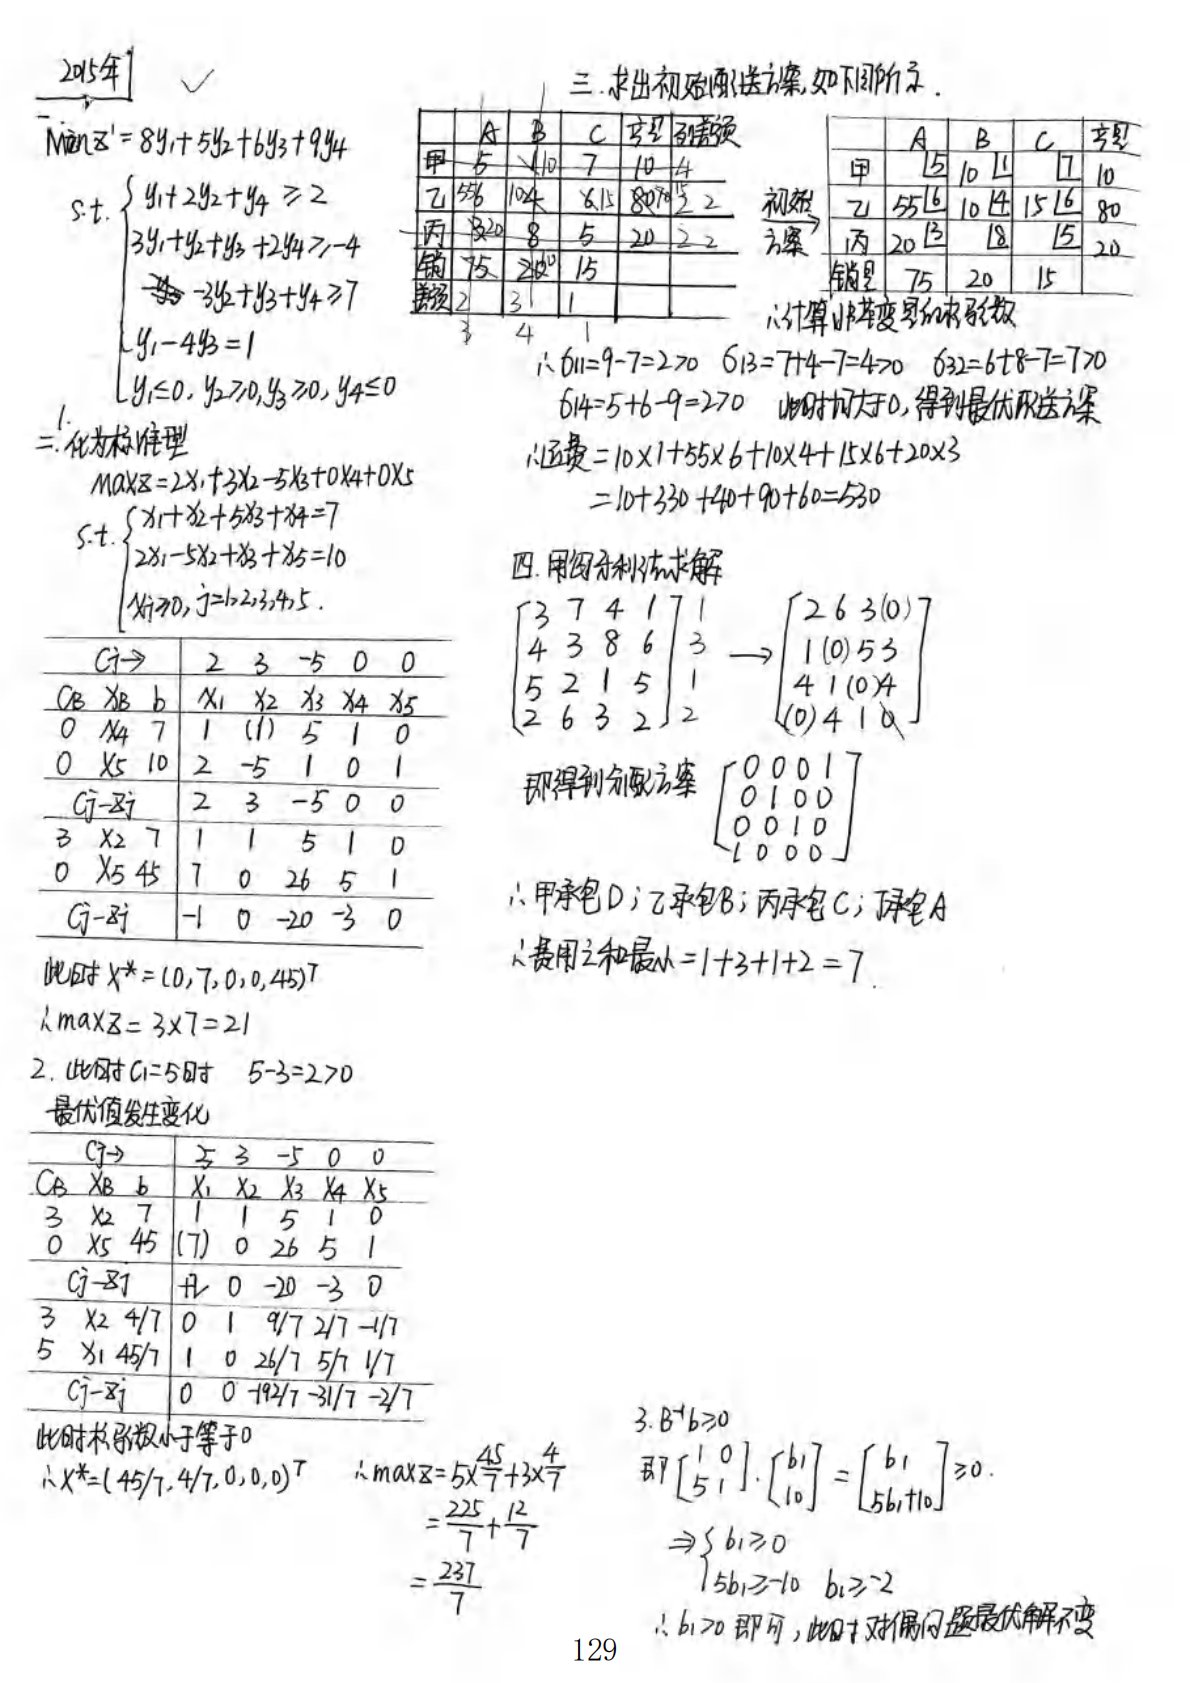 2015年
一.
Min z' = 8y₁+5y₂+6y₃+9y₄
s.t. { y₁+2y₂+y₄ ≥ 2
3y₁+y₂+y₃+2y₄ ≥ -4
-3y₂+y₃+y₄ ≥ 7
y₁-4y₃ = 1
y₁≤0, y₂≥0, y₃≥0, y₄≤0
二. 1. 化为标准型
max z = 2x₁+3x₂-5x₃+0x₄+0x₅
s.t. { x₁+x₂+5x₃+x₄=7
2x₁-5x₂+x₃+x₅=10
xj≥0, j=1,2,3,4,5.
Cj→ 2 3 -5 0 0
CB XB b x₁ x₂ x₃ x₄ x₅
0 x₄ 7 1 (1) 5 1 0
0 x₅ 10 2 -5 1 0 1
Cj-Zj 2 3 -5 0 0
3 x₂ 7 1 1 5 1 0
0 x₅ 45 7 0 26 5 1
Cj-Zj -1 0 -20 -3 0
此时 x* = (0,7,0,0,45)ᵀ
∴ max z = 3×7 = 21
2. 此时 C₁=5时 5-3=2>0
最优值发生变化
Cj→ 5 3 -5 0 0
CB XB b x₁ x₂ x₃ x₄ x₅
3 x₂ 7 1 1 5 1 0
0 x₅ 45 (7) 0 26 5 1
Cj-Zj +2 0 -20 -3 0
3 x₂ 4/7 0 1 9/7 2/7 -1/7
5 x₁ 45/7 1 0 26/7 5/7 1/7
Cj-Zj 0 0 -192/7 -31/7 -2/7
此时检系数小于等于0
∴ x* = (45/7, 4/7, 0, 0, 0)ᵀ
∴ max z = 5×45/7+3×4/7
= 225/7 + 12/7
= 237/7
3. B⁻¹b≥0
即 [1 0; 5 1]·[b₁; 10] = [b₁; 5b₁+10] ≥0.
⇒ { b₁≥0
5b₁≥-10 b₁≥-2
∴ b₁>0 即可, 此时对偶问题最优解不变
三. 求出初始配送方案, 如下图所示.
A B C 产量 列差额
甲 5 1 10 7 10 4
乙 55 6 10 4 6 15 80 2 2
丙 3 20 8 5 20 2 2
销 75 20 15
差额 2 3 1
3 4 1
初始方案 →
A B C 产量
甲 5 10 1 7 10
乙 55 6 10 4 15 6 80
丙 20 3 8 5 20
销量 75 20 15
∴计算非基变量的检系数
∴ σ₁₁=9-7=2>0 σ₁₃=7+4-7=4>0 σ₃₂=6+8-7=7>0
σ₁₄=5+6-9=2>0 此时均大于0, 得到最优配送方案
∴运费=10×1+55×6+10×4+15×6+20×3
=10+330+40+90+60=530
四. 用匈牙利法求解
[3 7 4 1] 1 [2 6 3 (0)]
[4 3 8 6] 3 → [1 (0) 5 3]
[5 2 1 5] 1 [4 1 (0) 4]
[2 6 3 2] 2 [(0) 4 1 0]
即得到分配方案
[0 0 0 1]
[0 1 0 0]
[0 0 1 0]
[1 0 0 0]
∴甲承包D; 乙承包B; 丙承包C; 丁承包A
∴费用之和最小=1+3+1+2=7.
129